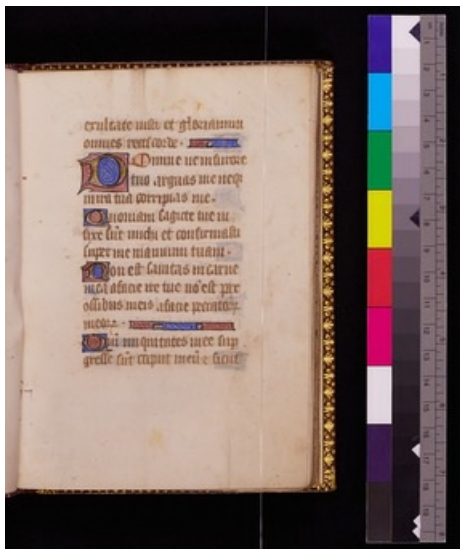 exultate iusti et gloriamini
omnes recti corde
Domine ne in furore
tuo arguas me neqȝ
in ira tua corripias me.
Quoniam sagitte tue in
fixe sūt michi et confirmasti
super me manum tuam.
Non est sanitas in carne
mea a facie ire tue nō est pax
ossibus meis a facie peccatoꝝ
meoꝝ.
Qm̄ iniquitates mee sup
gresse sūt caput meū ⁊ sicut